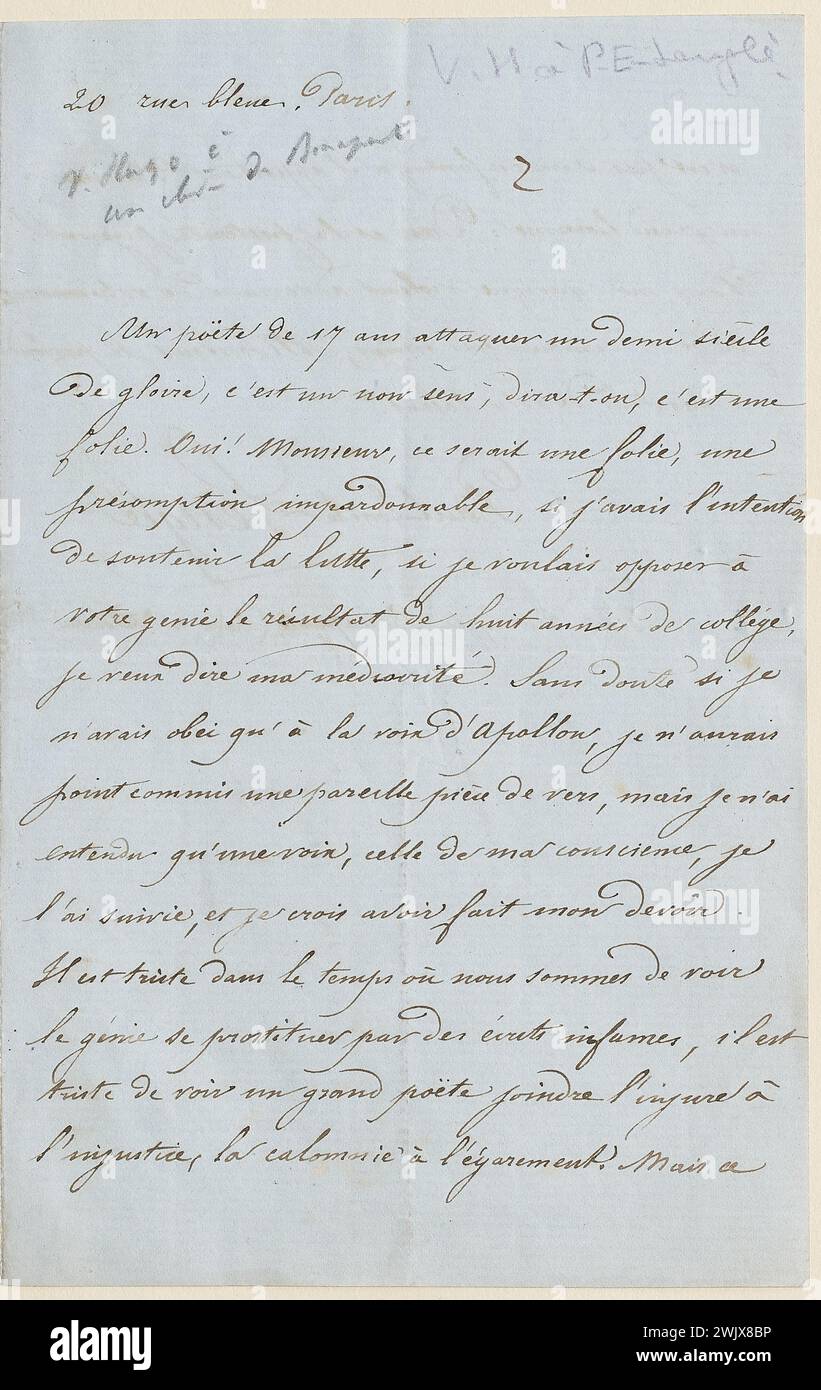 V. H à P. E. Langlé.
20 rue bleue. Paris.
V. Hugo à
un de Bonaparte
2
Un poëte de 17 ans attaquer un demi siècle
de gloire, c'est un non sens, dira-t-on, c'est une
folie. Oui! Monsieur, ce serait une folie, une
présomption impardonnable, si j'avais l'intention
de soutenir la lutte, si je voulais opposer à
votre génie le résultat de huit années de collége,
je veux dire ma médiocrité. Sans doute si je
n'avais obei qu'à la voix d'Apollon, je n'aurais
point commis une pareille pièce de vers, mais je n'ai
entendu qu'une voix, celle de ma conscience, je
l'ai suivie, et je crois avoir fait mon devoir.
Il est triste dans le temps où nous sommes de voir
le génie se prostituer par des écrits infames, il est
triste de voir un grand poëte joindre l'injure à
l'injustice, la calomnie à l'égarement. Mais ce
alamy
alamy
Image ID: 2WJX8BP
www.alamy.com